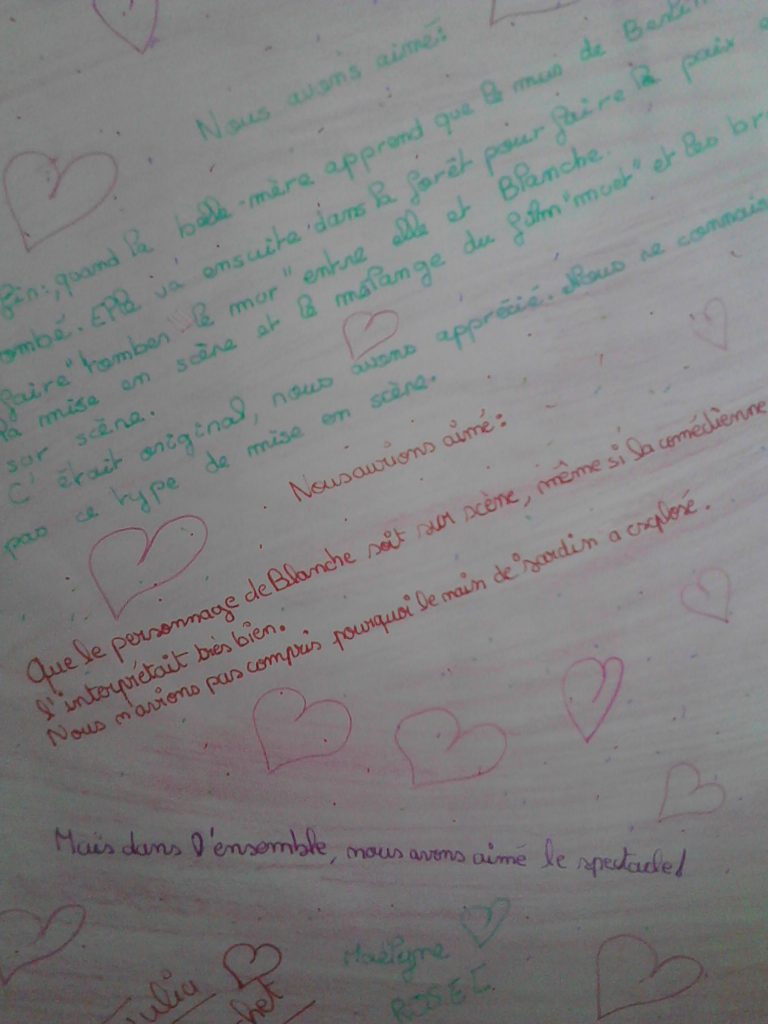 Nous avons aimé:
fin:, quand la belle-mère apprend que le mur de Berlin
tombé. Elle va ensuite dans la forêt pour faire la paix
faire "tomber le mur" entre elle et Blanche.
la mise en scène et le mélange du film "muet" et les
sur scène.
C'était original, nous avons apprécié. Nous ne
pas ce type de mise en scène.
Nous aurions aimé:
Que le personnage de Blanche soit sur scène, même si la comédienne
l'interprétait très bien.
Nous n'avions pas compris pourquoi le nain de jardin a explosé.
Mais dans l'ensemble, nous avons aimé le spectacle!
Maëlyne
ROSEC
Julia